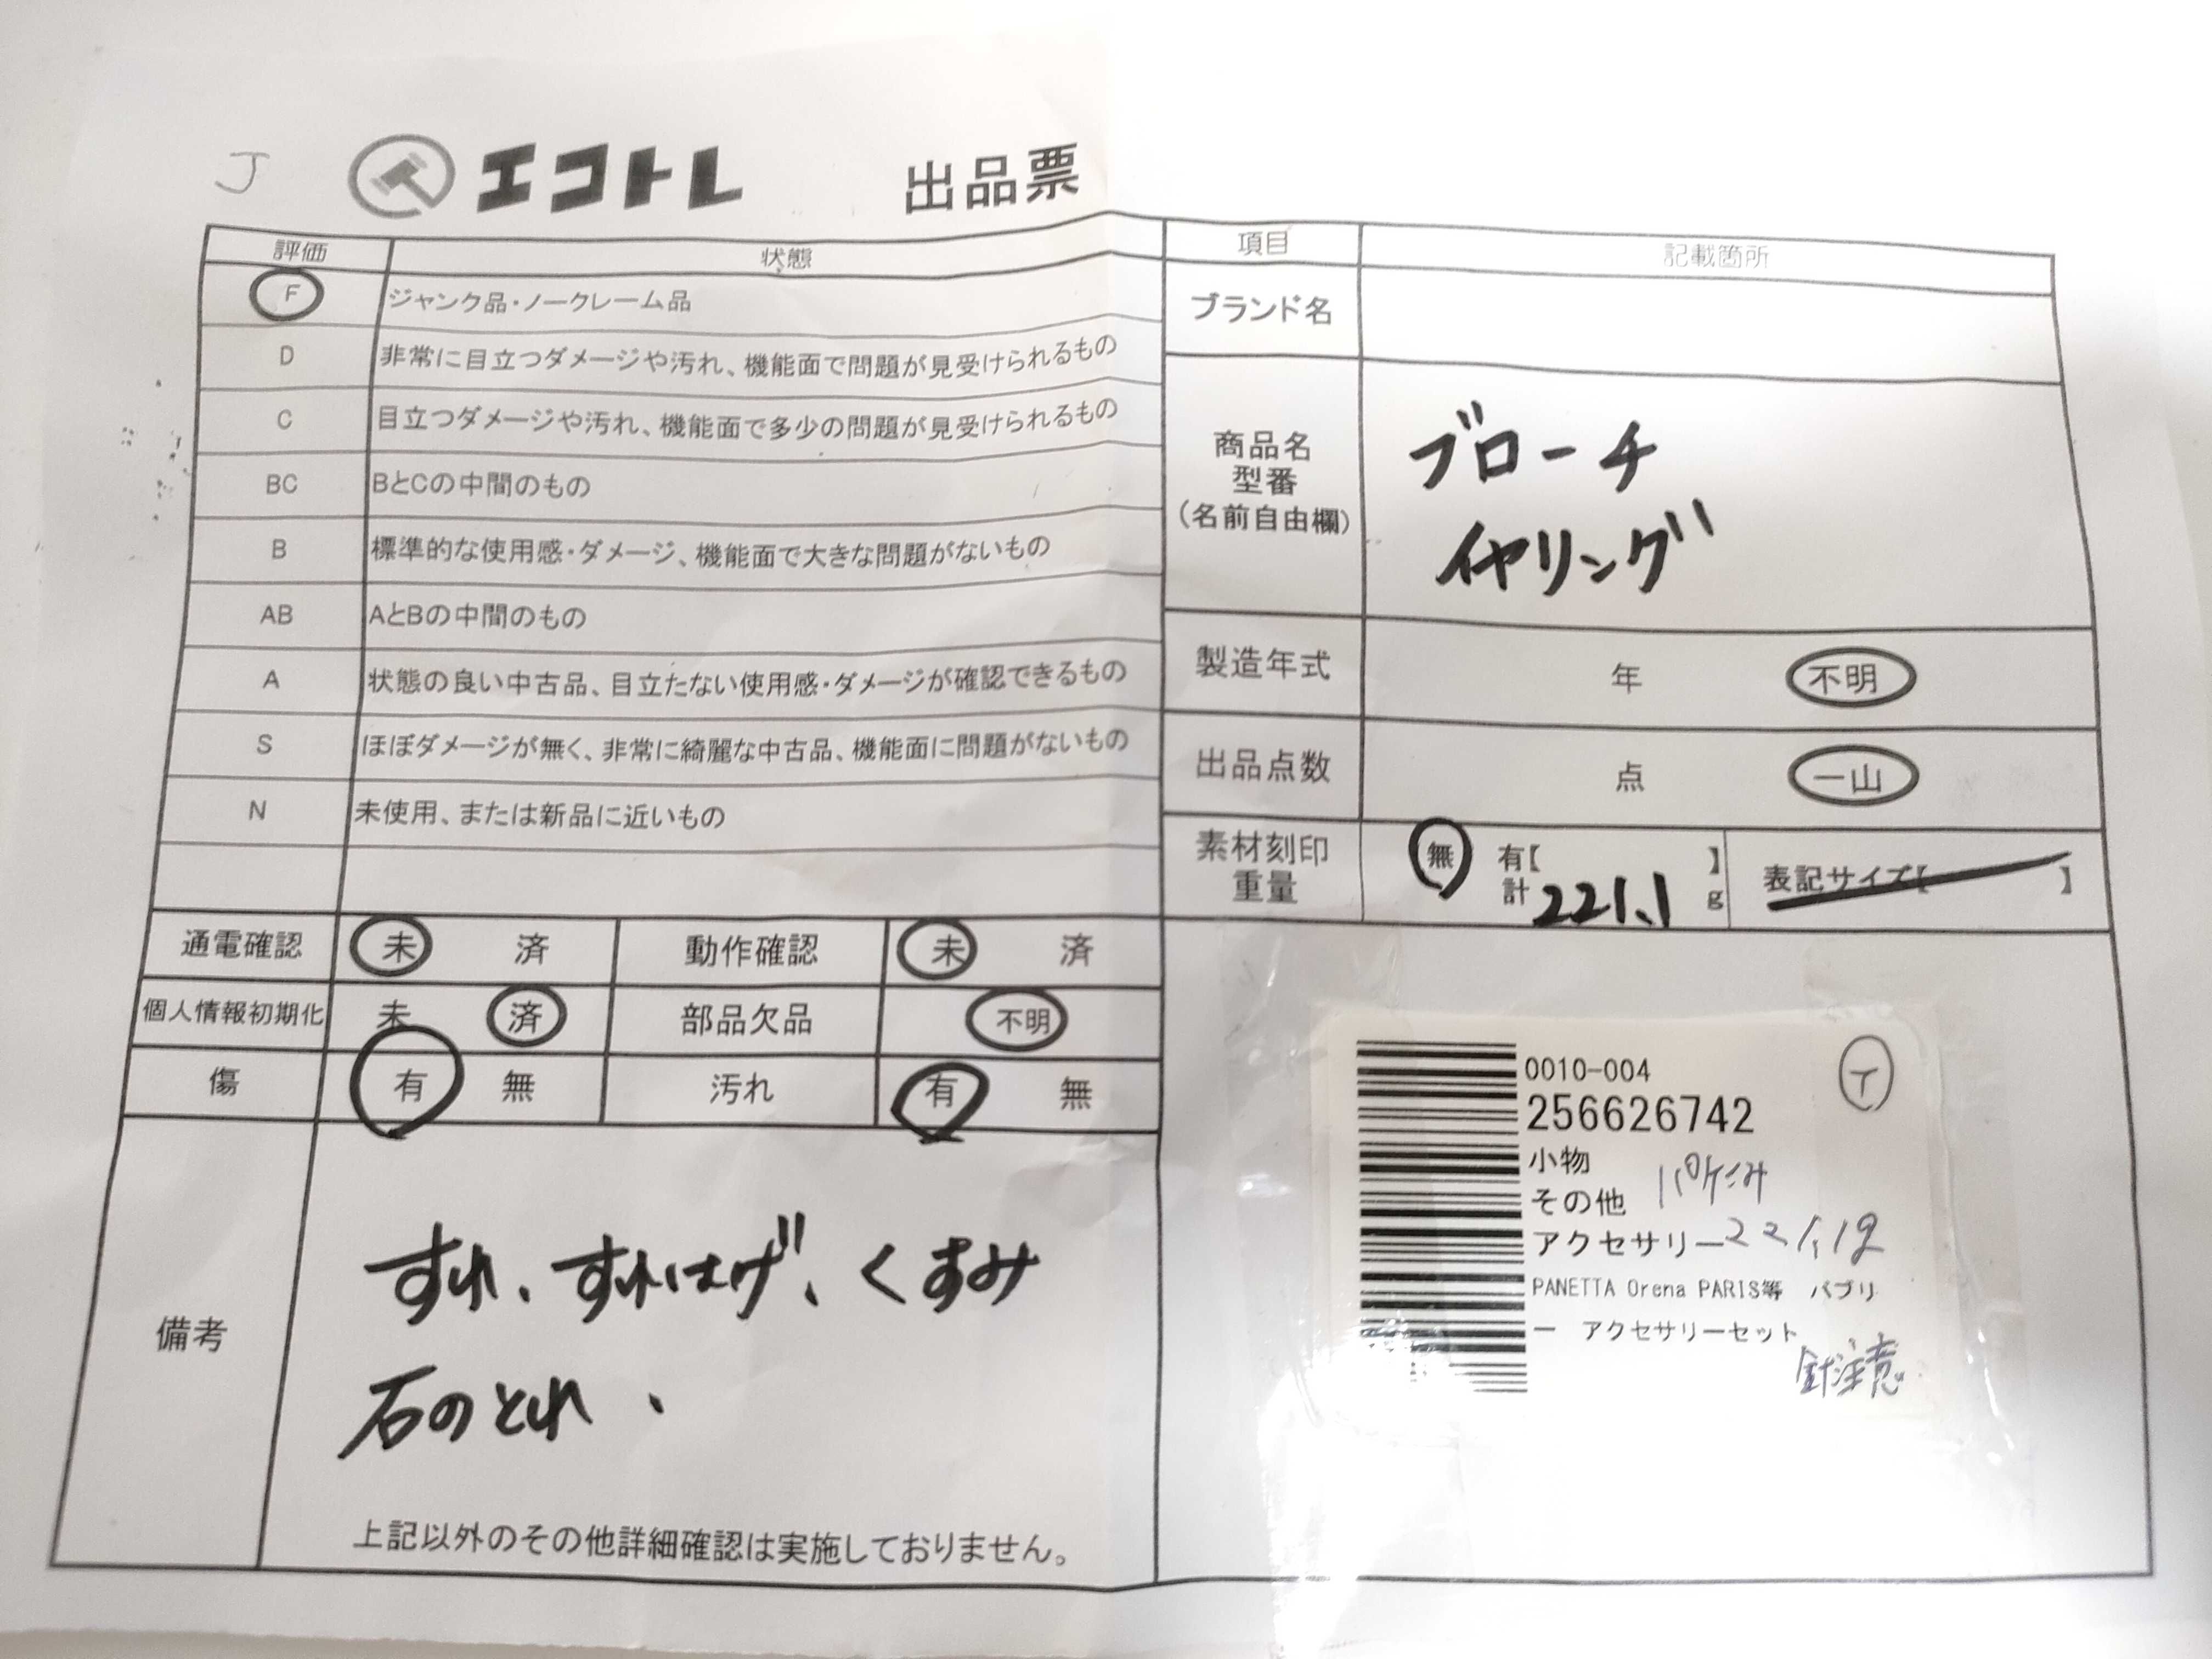 J
エコトレ 出品票
評価 状態
F ジャンク品・ノークレーム品
D 非常に目立つダメージや汚れ、機能面で問題が見受けられるもの
C 目立つダメージや汚れ、機能面で多少の問題が見受けられるもの
BC BとCの中間のもの
B 標準的な使用感・ダメージ、機能面で大きな問題がないもの
AB AとBの中間のもの
A 状態の良い中古品、目立たない使用感・ダメージが確認できるもの
S ほぼダメージが無く、非常に綺麗な中古品、機能面に問題がないもの
N 未使用、または新品に近いもの
通電確認 未 済 動作確認 未 済
個人情報初期化 未 済 部品欠品 不明
傷 有 無 汚れ 有 無
備考
すれ、すれはげ、くすみ
石のとれ、
上記以外のその他詳細確認は実施しておりません。
項目 記載箇所
ブランド名
商品名
型番
(名前自由欄)
ブローチ
イヤリング
製造年式 年 不明
出品点数 点 一山
素材刻印
重量
無 有【 】
計 221.1 g
表記サイズ【 】
0010-004
256626742
小物
その他
アクセサリー 221.1g
PANETTA Orena PARIS等 パブリ
ー アクセサリーセット
針注意